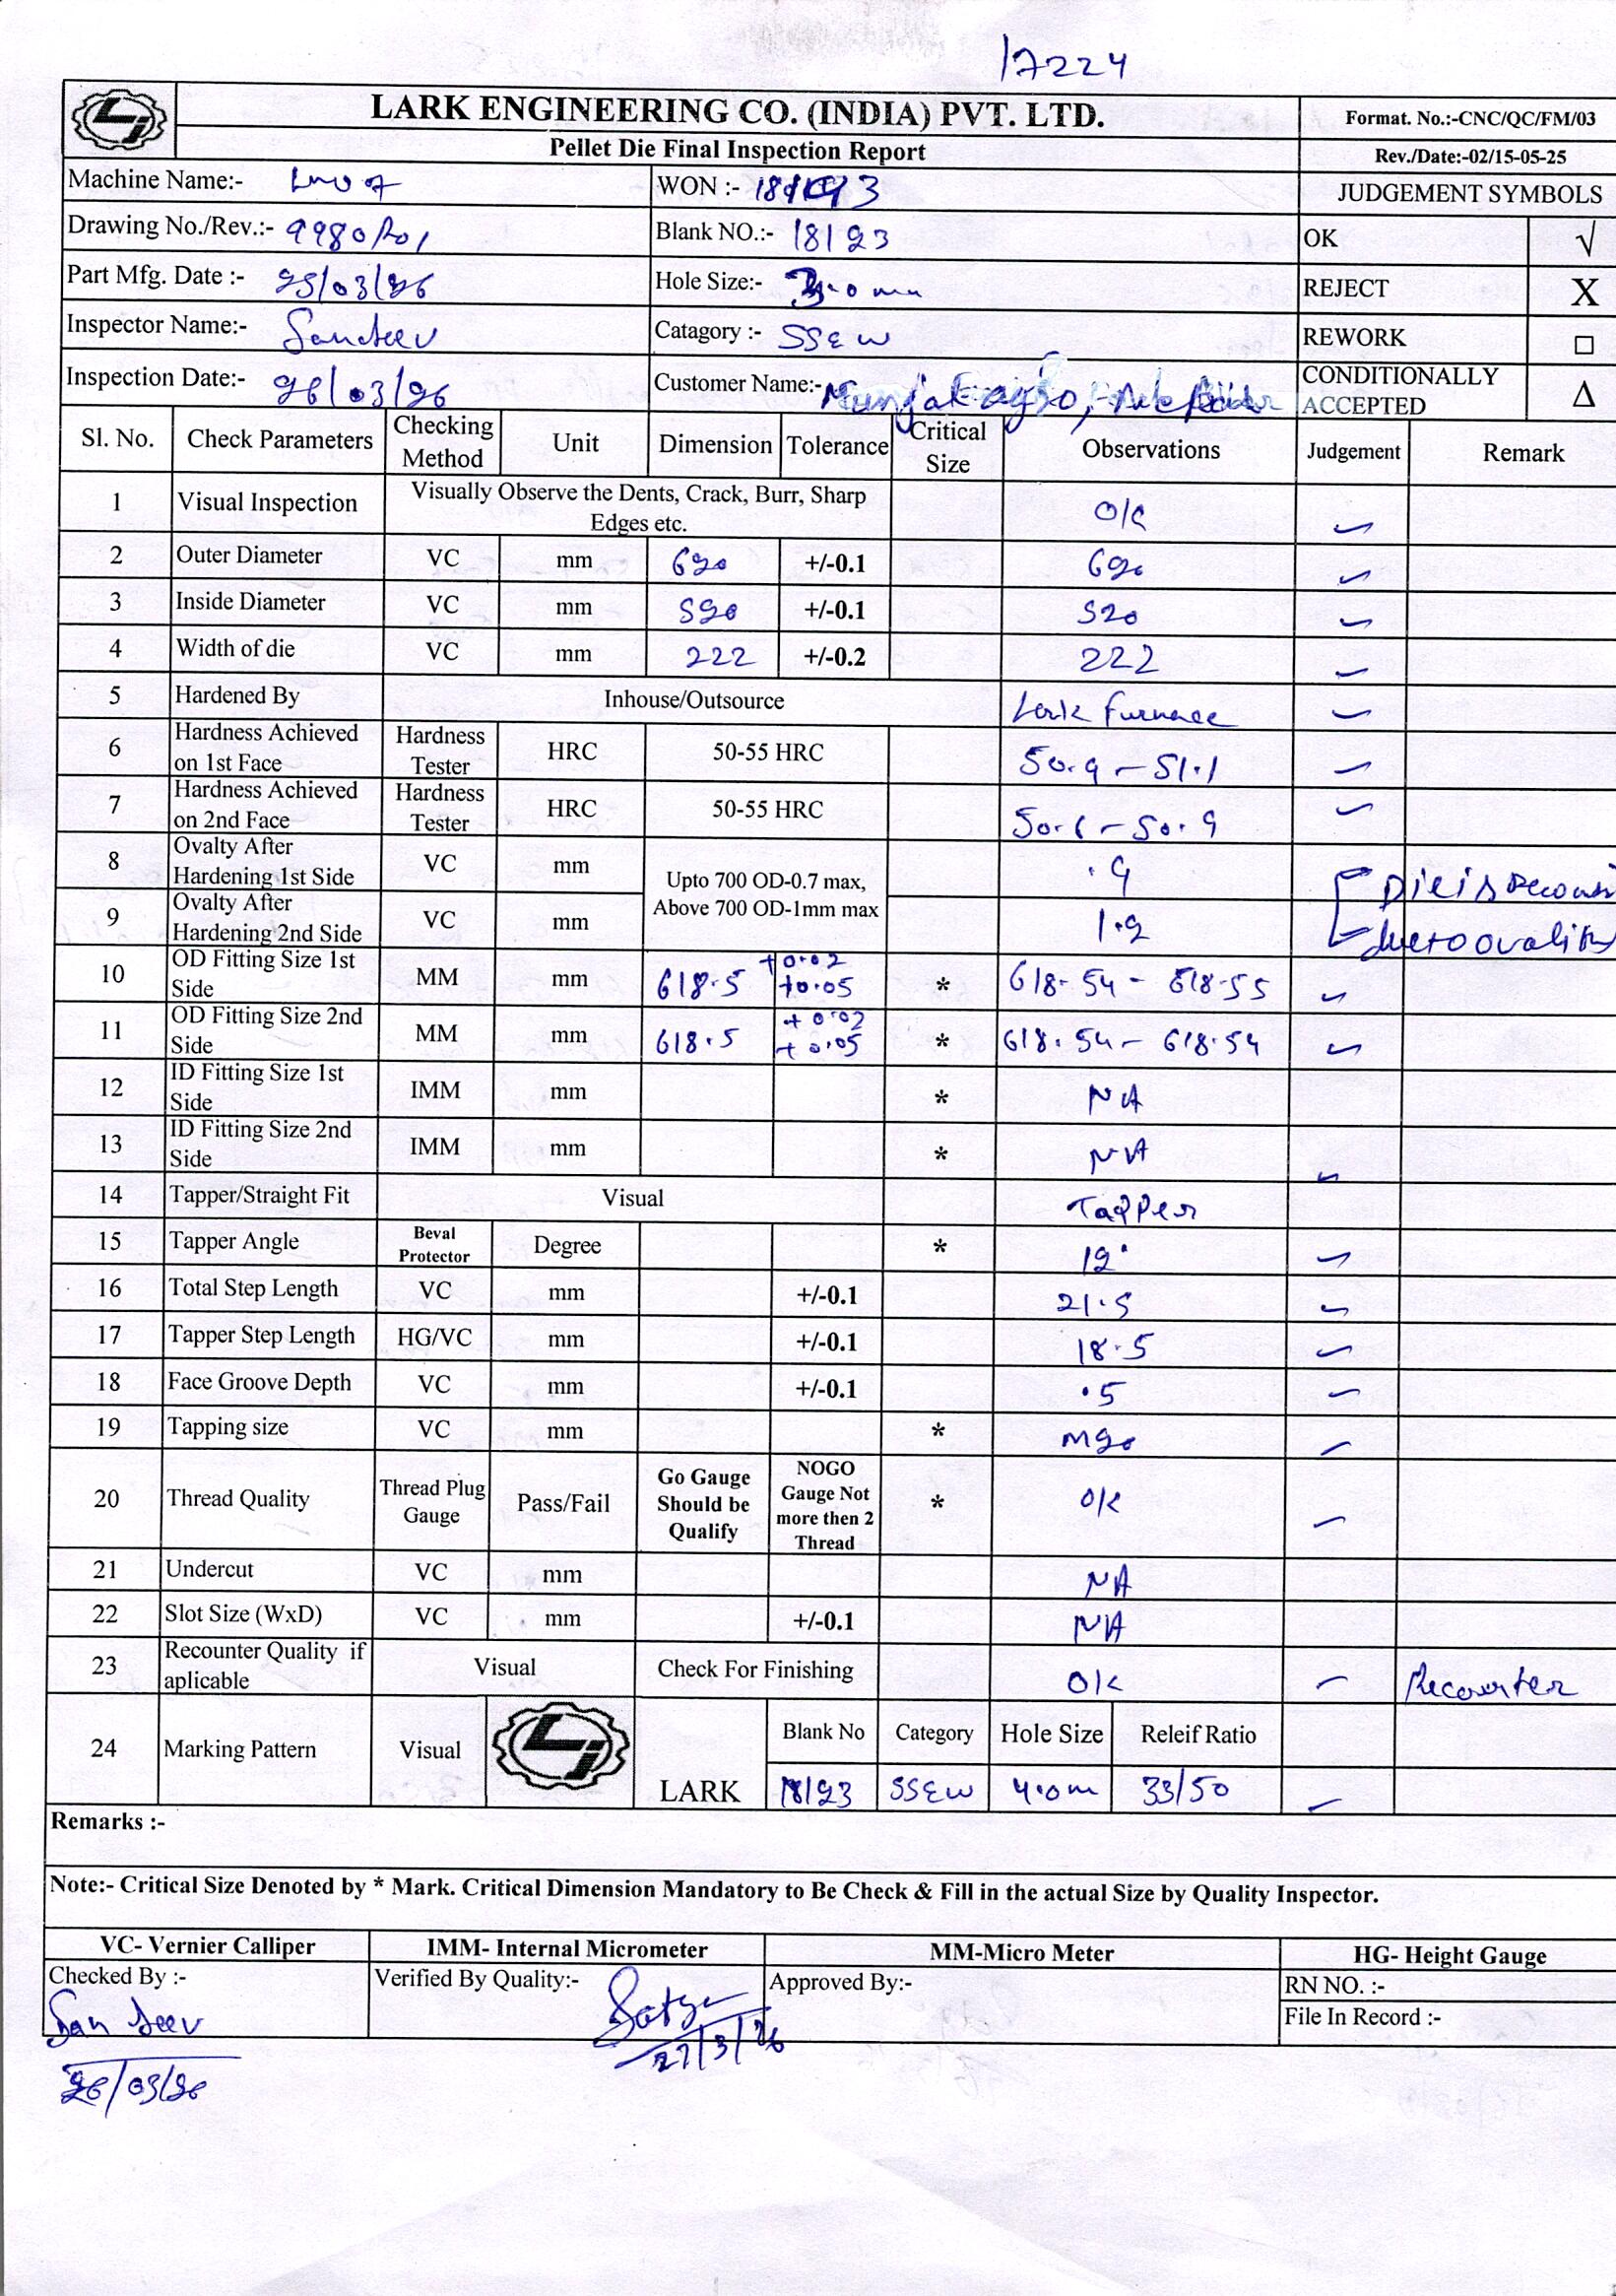 17224
LARK ENGINEERING CO. (INDIA) PVT. LTD.
Format. No.:-CNC/QC/FM/03
Pellet Die Final Inspection Report
Rev./Date:-02/15-05-25
Machine Name:-
WON :-
JUDGEMENT SYMBOLS
Drawing No./Rev.:- 9980/R01
Blank NO.:- 18123
OK √
Part Mfg. Date :- 25/03/26
Hole Size:-
REJECT X
Inspector Name:- Sandeev
Catagory :- SSEW
REWORK □
Inspection Date:- 26/03/26
Customer Name:-
CONDITIONALLY ACCEPTED Δ
Sl. No. Check Parameters Checking Method Unit Dimension Tolerance Critical Size Observations Judgement Remark
1 Visual Inspection Visually Observe the Dents, Crack, Burr, Sharp Edges etc. OK
2 Outer Diameter VC mm 620 +/-0.1 620
3 Inside Diameter VC mm 520 +/-0.1 520
4 Width of die VC mm 222 +/-0.2 222
5 Hardened By Inhouse/Outsource Lark furnace
6 Hardness Achieved on 1st Face Hardness Tester HRC 50-55 HRC 50.9 - 51.1
7 Hardness Achieved on 2nd Face Hardness Tester HRC 50-55 HRC 50.6 - 50.9
8 Ovalty After Hardening 1st Side VC mm Upto 700 OD-0.7 max, Above 700 OD-1mm max .9 Die is
9 Ovalty After Hardening 2nd Side VC mm 1.2 due to ovality
10 OD Fitting Size 1st Side MM mm 618.5 +0.02 +0.05 * 618.54 - 618.55
11 OD Fitting Size 2nd Side MM mm 618.5 +0.02 +0.05 * 618.54 - 618.54
12 ID Fitting Size 1st Side IMM mm * NA
13 ID Fitting Size 2nd Side IMM mm * NA
14 Tapper/Straight Fit Visual Tapper
15 Tapper Angle Beval Protector Degree * 12°
16 Total Step Length VC mm +/-0.1 21.5
17 Tapper Step Length HG/VC mm +/-0.1 18.5
18 Face Groove Depth VC mm +/-0.1 .5
19 Tapping size VC mm * M20
20 Thread Quality Thread Plug Gauge Pass/Fail Go Gauge Should be Qualify NOGO Gauge Not more then 2 Thread * OK
21 Undercut VC mm NA
22 Slot Size (WxD) VC mm +/-0.1 NA
23 Recounter Quality if aplicable Visual Check For Finishing OK Recounter
24 Marking Pattern Visual LARK
Blank No Category Hole Size Releif Ratio
18123 SSEW 4.0m 33/50
Remarks :-
Note:- Critical Size Denoted by * Mark. Critical Dimension Mandatory to Be Check & Fill in the actual Size by Quality Inspector.
VC- Vernier Calliper IMM- Internal Micrometer MM-Micro Meter HG- Height Gauge
Checked By :- Sandeev
Verified By Quality:-
Approved By:-
RN NO. :-
File In Record :-
27/3/26
26/03/26